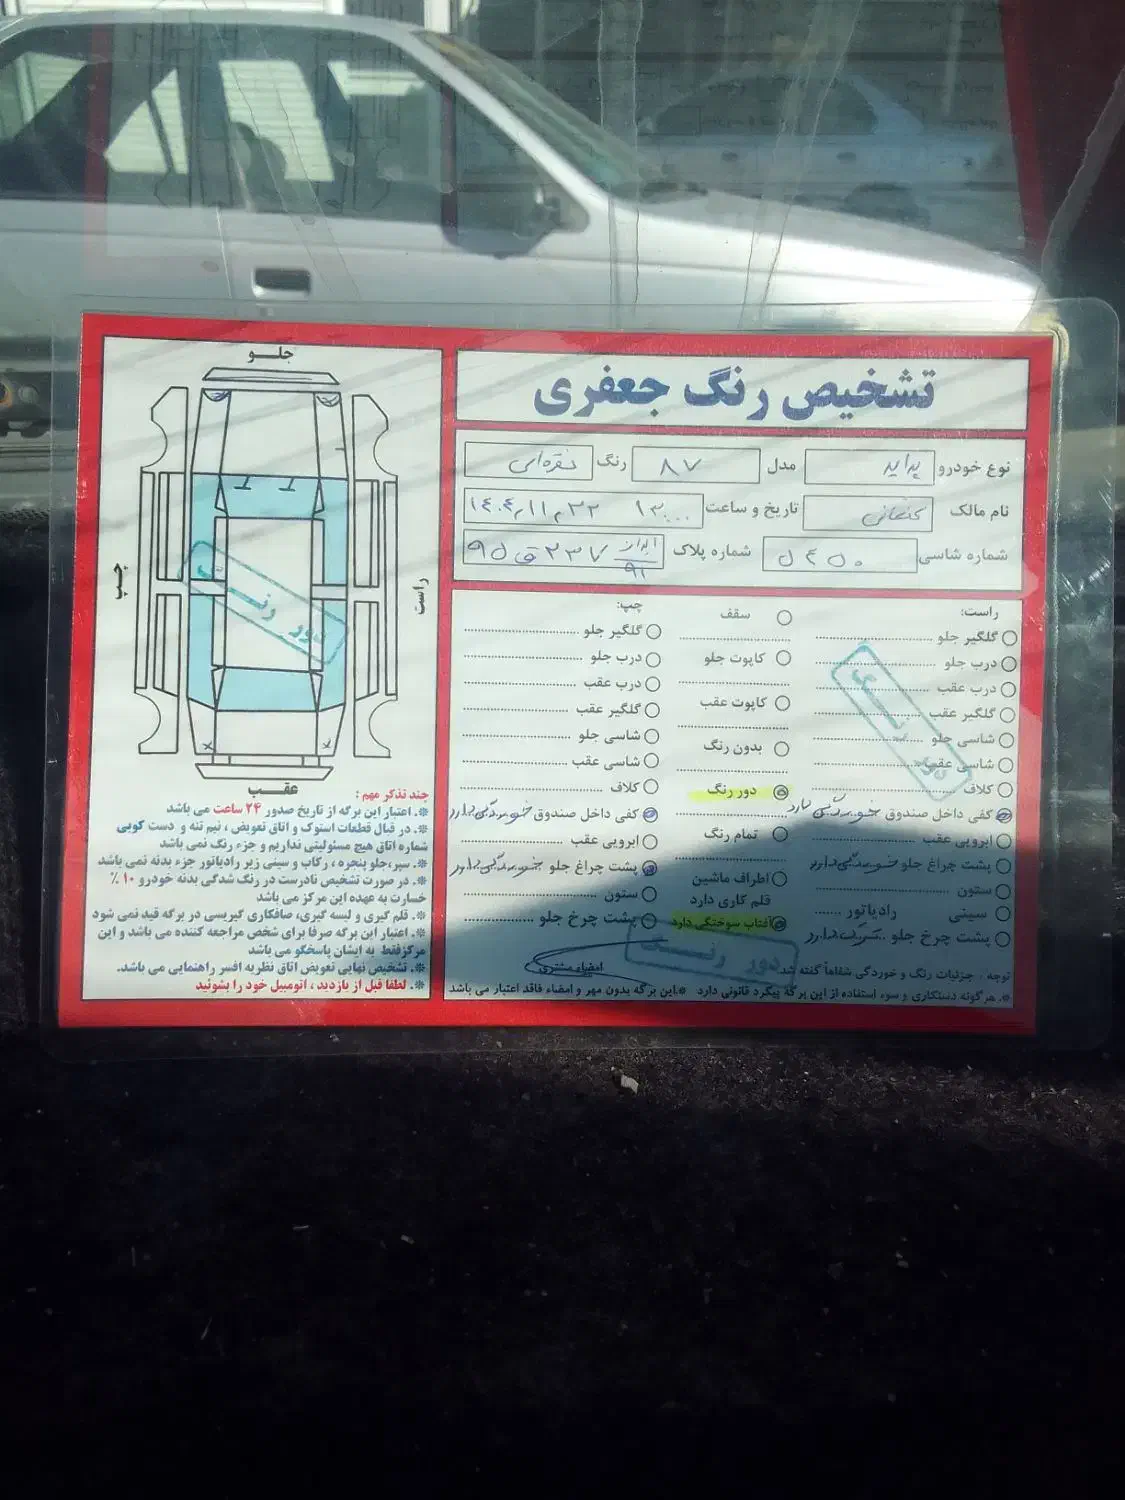 تشخیص رنگ جعفری
نوع خودرو پراید مدل ۸۷ رنگ نقره‌ای
نام مالک کنعانی تاریخ و ساعت ۱۴۰۴٫۱۱٫۲۲ ۱۳:۰۰
شماره شاسی شماره پلاک ۹۵ ق ۲۳۷ ایران ۹۱
راست:
گلگیر جلو
درب جلو
درب عقب
گلگیر عقب
شاسی جلو
شاسی عقب
کلاف
کفی داخل صندوق خوردگی دارد
ابرویی عقب
پشت چراغ جلو خوردگی دارد
ستون
سینی رادیاتور
پشت چرخ جلو
سقف
کاپوت جلو
کاپوت عقب
بدون رنگ
دور رنگ
تمام رنگ
اطراف ماشین
قلم کاری دارد
آفتاب سوختگی دارد
چپ:
گلگیر جلو
درب جلو
درب عقب
گلگیر عقب
شاسی جلو
شاسی عقب
کلاف
کفی داخل صندوق خوردگی دارد
ابرویی عقب
پشت چراغ جلو خوردگی دارد
ستون
پشت چرخ جلو
امضاء مشتری
توجه - جزئیات رنگ و خوردگی شفاهاً گفته شد
*. هرگونه دستکاری و سوء استفاده از این برگه پیگرد قانونی دارد *. این برگه بدون مهر و امضاء فاقد اعتبار می باشد
دور رنگ
دور رنگ
دور رنگ
جلـو
چپ
راست
عقـب
چند تذکر مهم :
*. اعتبار این برگه از تاریخ صدور ۲۴ ساعت می باشد
*. در قبال قطعات استوک و اتاق تعویض ، نیم تنه و دست کوبی
شماره اتاق هیچ مسئولیتی نداریم و جزء رنگ نمی باشد
*. سپر،جلو پنجره ، رکاب و سینی زیر رادیاتور جزء بدنه نمی باشد
*. در صورت تشخیص نادرست در رنگ شدگی بدنه خودرو ۱۰٪
خسارت به عهده این مرکز می باشد
*. قلم گیری و لیسه گیری، صافکاری گیریسی در برگه قید نمی شود
*. اعتبار این برگه صرفا برای شخص مراجعه کننده می باشد و این
مرکزفقط به ایشان پاسخگو می باشد
*. تشخیص نهایی تعویض اتاق نظریه افسر راهنمایی می باشد.
*. لطفا قبل از بازدید ، اتومبیل خود را بشوئید